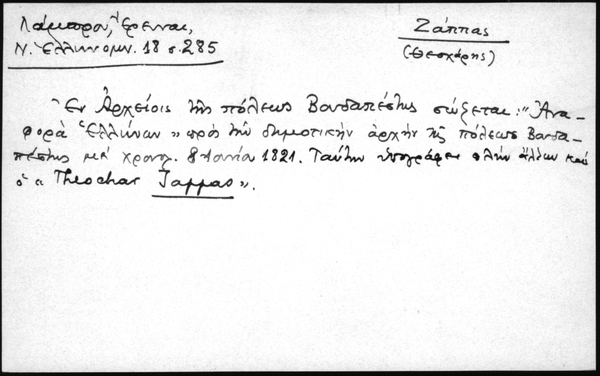 Λάμπρου, Ἔρευναι,
Ν. Ἑλληνομν. 18 σ. 285
Ζάππας
(Θεοχάρης)
Ἐν Ἀρχείοις τῆς πόλεως Βουδαπέστης σώζεται: "Ἀνα-
φορὰ Ἑλλήνων" πρὸς τὴν δημοτικὴν ἀρχὴν τῆς πόλεως Βουδα-
πέστης μὲ χρονολ. 8 Ιουνία 1821. Ταύτην ὑπογράφει πλὴν ἄλλων καὶ
ὁ "Theochar Zappas".